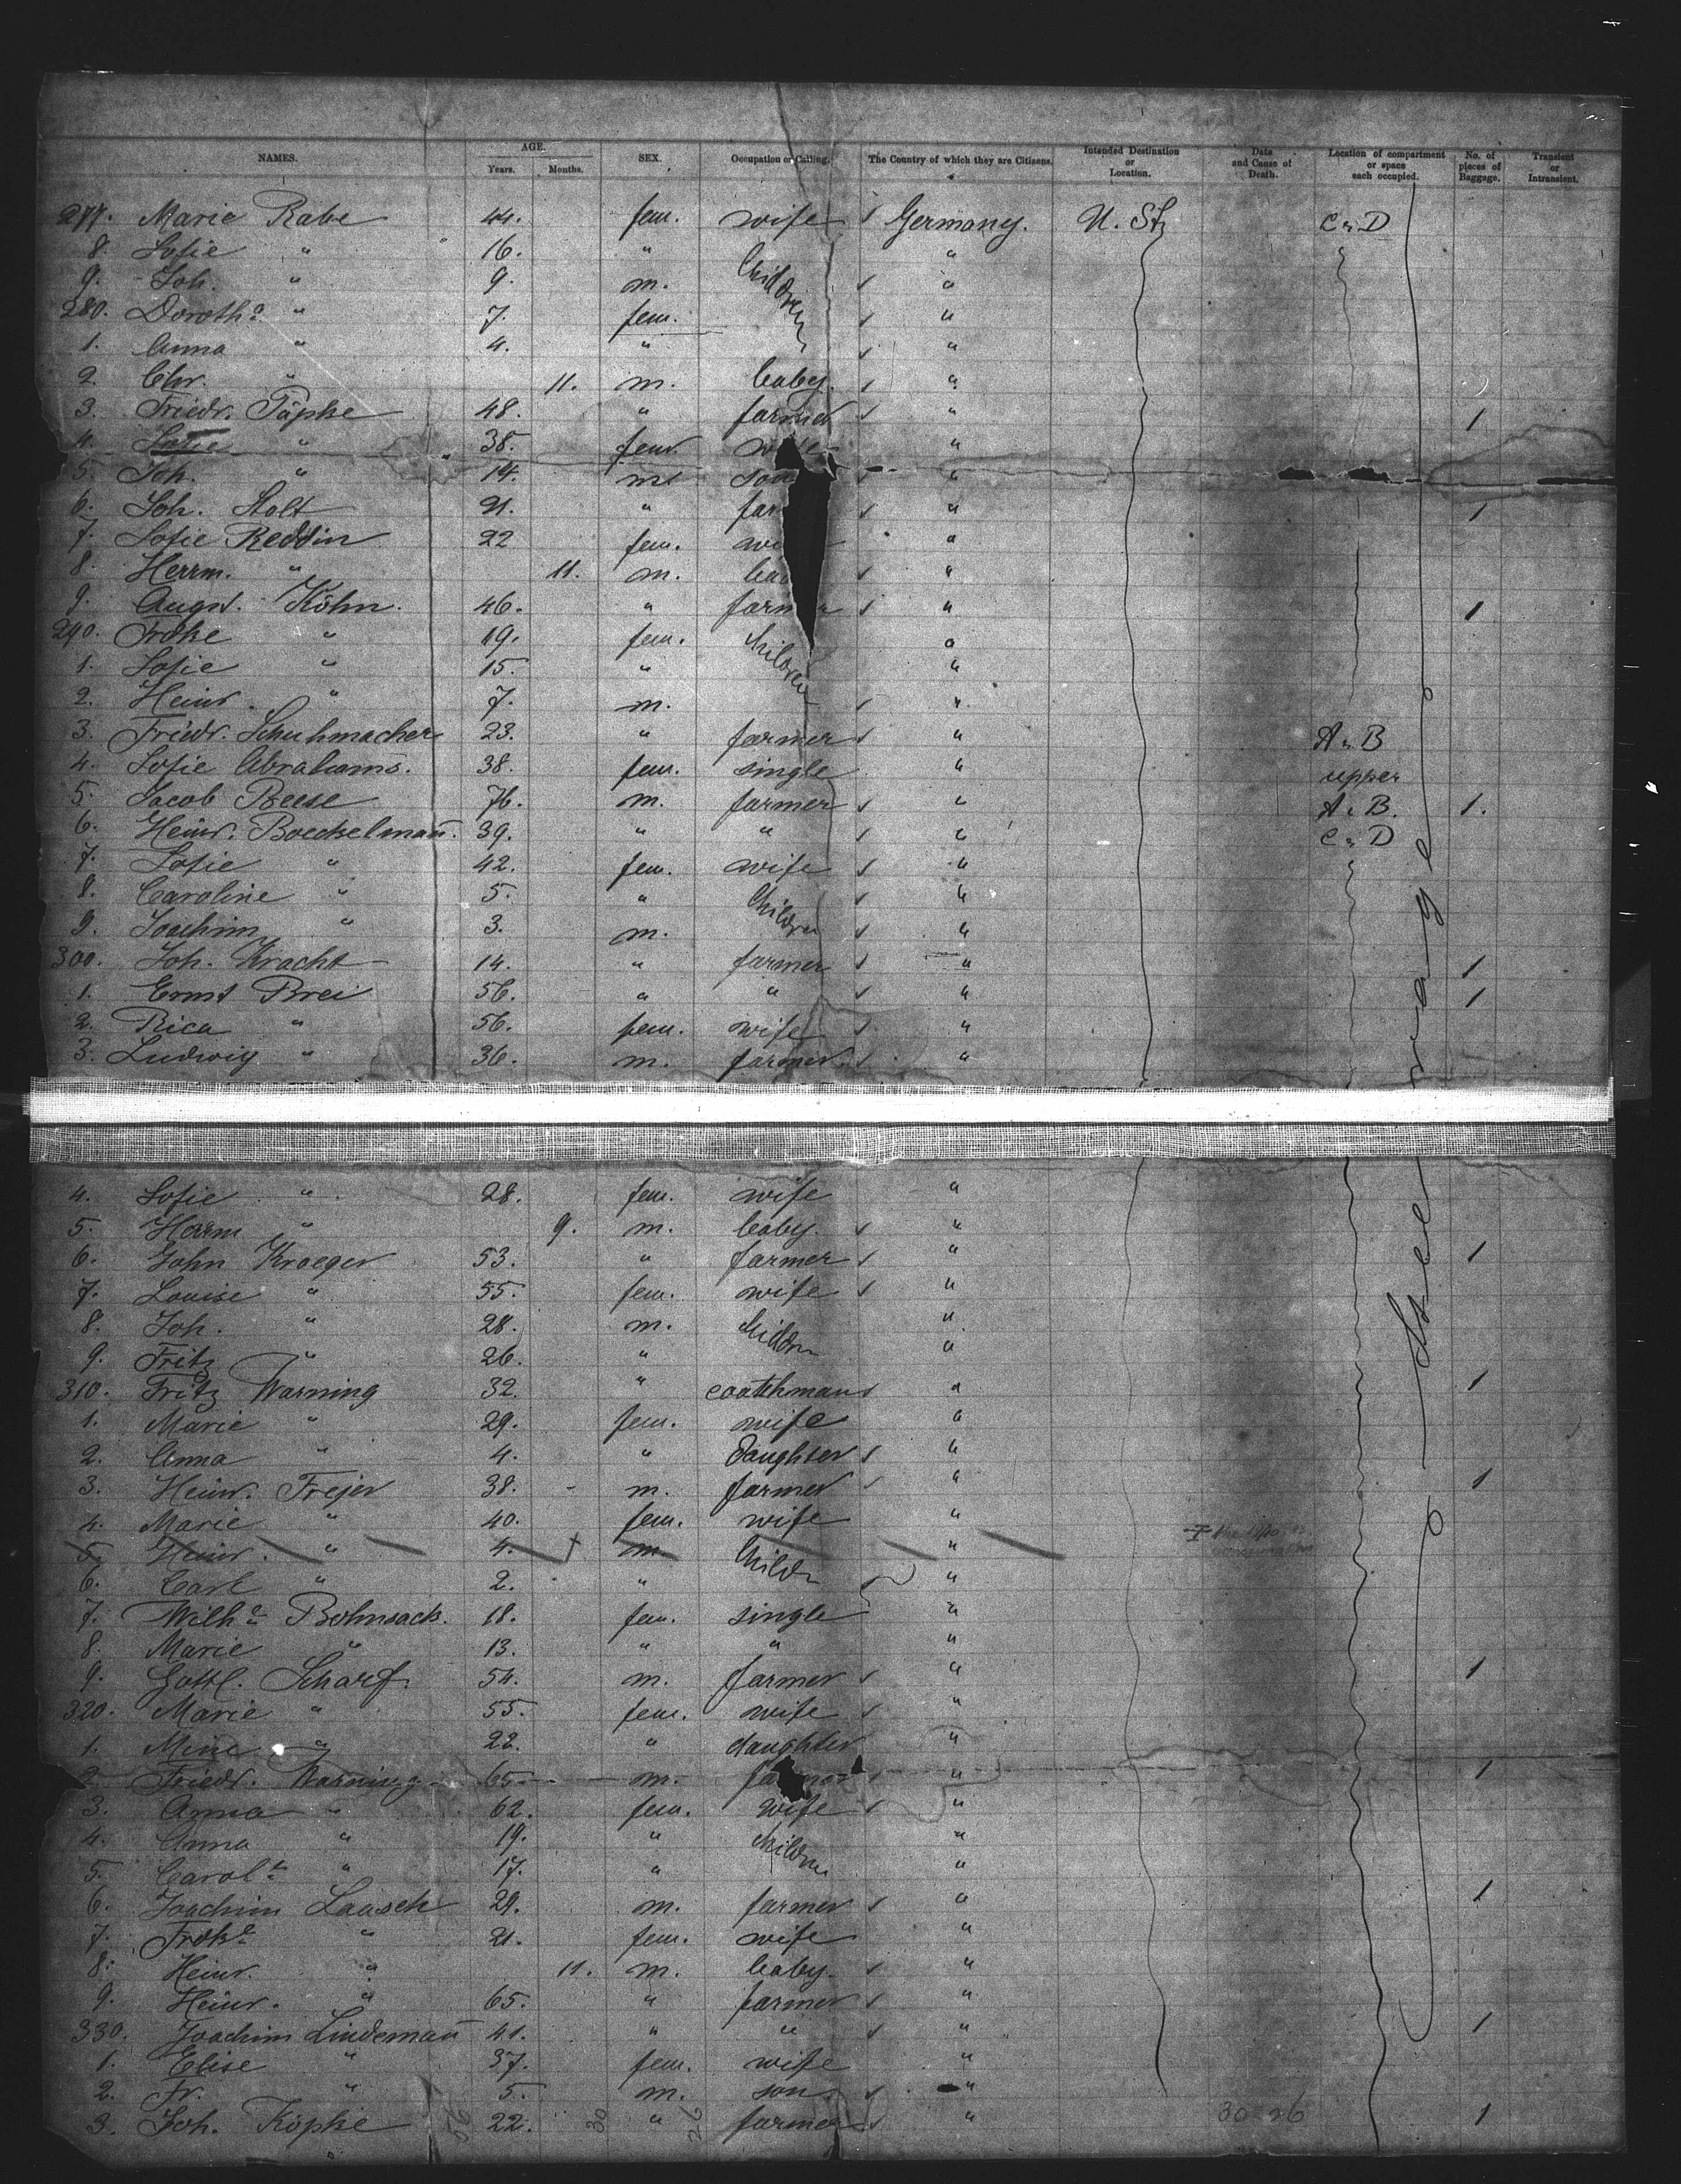 NAMES. AGE. Years. Months. SEX. Occupation or Calling. The Country of which they are Citizens. Intended Destination or Location. Date and Cause of Death. Location of compartment or space each occupied. No. of pieces of Baggage. Transient or Intransient.
277. Marie Rabe 44. fem. wife Germany. U. Sts C & D
8. Sofie " 16. " Children "
9. Joh. " 9. m. "
280. Doroth.a " 7. fem. "
1. Anna " 4. " "
2. Chr. " 11. m. baby. "
3. Friedr. Päpke 48. " farmer " 1
4. Sofie " 38. fem. wife "
5. Joh. " 14. m. son "
6. Joh. Stolt 21. " far " 1
7. Sofie Reddin 22 fem. wi "
8. Herrm. " 11. m. ba "
9. August Köhn. 46. " farmer " 1
290. Frdke " 19. fem. children "
1. Sofie " 15. " "
2. Heinr. " 7. m. "
3. Friedr. Schuhmacher 23. " farmer " A & B
4. Sofie Abrahams. 38. fem. single " upper
5. Jacob Beese 76. m. farmer " A & B. 1.
6. Heinr. Boeckelman̄. 39. " " " C & D
7. Sofie " 42. fem. wife "
8. Caroline " 5. " Children "
9. Joachim " 3. m. "
300. Joh. Kracht 14. " farmer " 1
1. Ernst Brei 56. " " " 1
2. Rica " 56. fem. wife "
3. Ludwig " 36. m. farmer "
4. Sofie " 28. fem. wife "
5. Herrm " 9. m. baby. "
6. John Kroeger 53. " farmer " 1
7. Louise " 55. fem. wife "
8. Joh. " 28. m. children "
9. Fritz " 26. " "
310. Fritz Warning 32. " coatchman " 1
1. Marie " 29. fem. wife "
2. Anna " 4. " Daughter "
3. Heinr. Frejer 38. m. farmer " 1
4. Marie " 40. fem. wife "
5. Heinr. " 4. m. Childr "
6. Carl " 2. " "
7. Wilh.e Bohnsack. 18. fem. single "
8. Marie " 13. " " "
9. Gottl. Scharf 54. m. farmer " 1
320. Marie " 55. fem. wife "
1. Mine " 22. " daughter "
2. Friedr. Warning 65. m. farmer " 1
3. Anna " 62. fem. wife "
4. Anna " 19. " children "
5. Carol.e " 17. " "
6. Joachim Laasch 29. m. farmer " 1
7. Frdk.e " 21. fem. wife "
8. Heinr. " 11. m. baby. "
9. Heinr. " 65. " farmer "
330. Joachim Lindeman̄ 41. " " " 1
1. Elise " 37. fem. wife "
2. Fr. " 5. m. son "
3. Joh. Köpke 22. " farmer " 1
Steerage
56 30 26 30 26